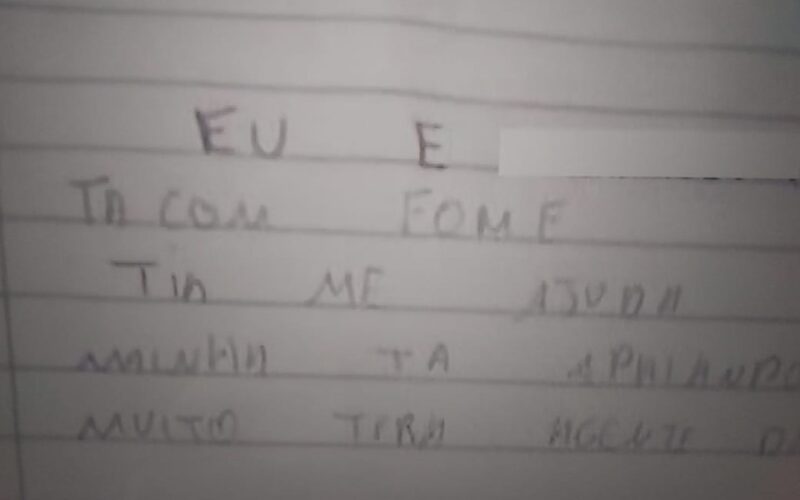 EU E
TA COM FOME
TIA ME AJUDA
MINHA TA APHIANDO
MUITO TIRA AGENTE D